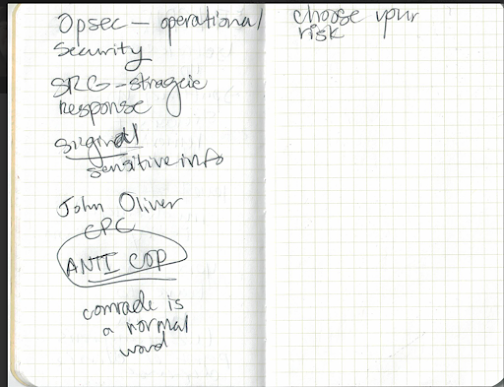 Opsec – operational
Security
SRG – strageic
Response
Signal
sensitive info
John Oliver
CPC
ANTI COP
comrade is
a normal
word
choose your
risk